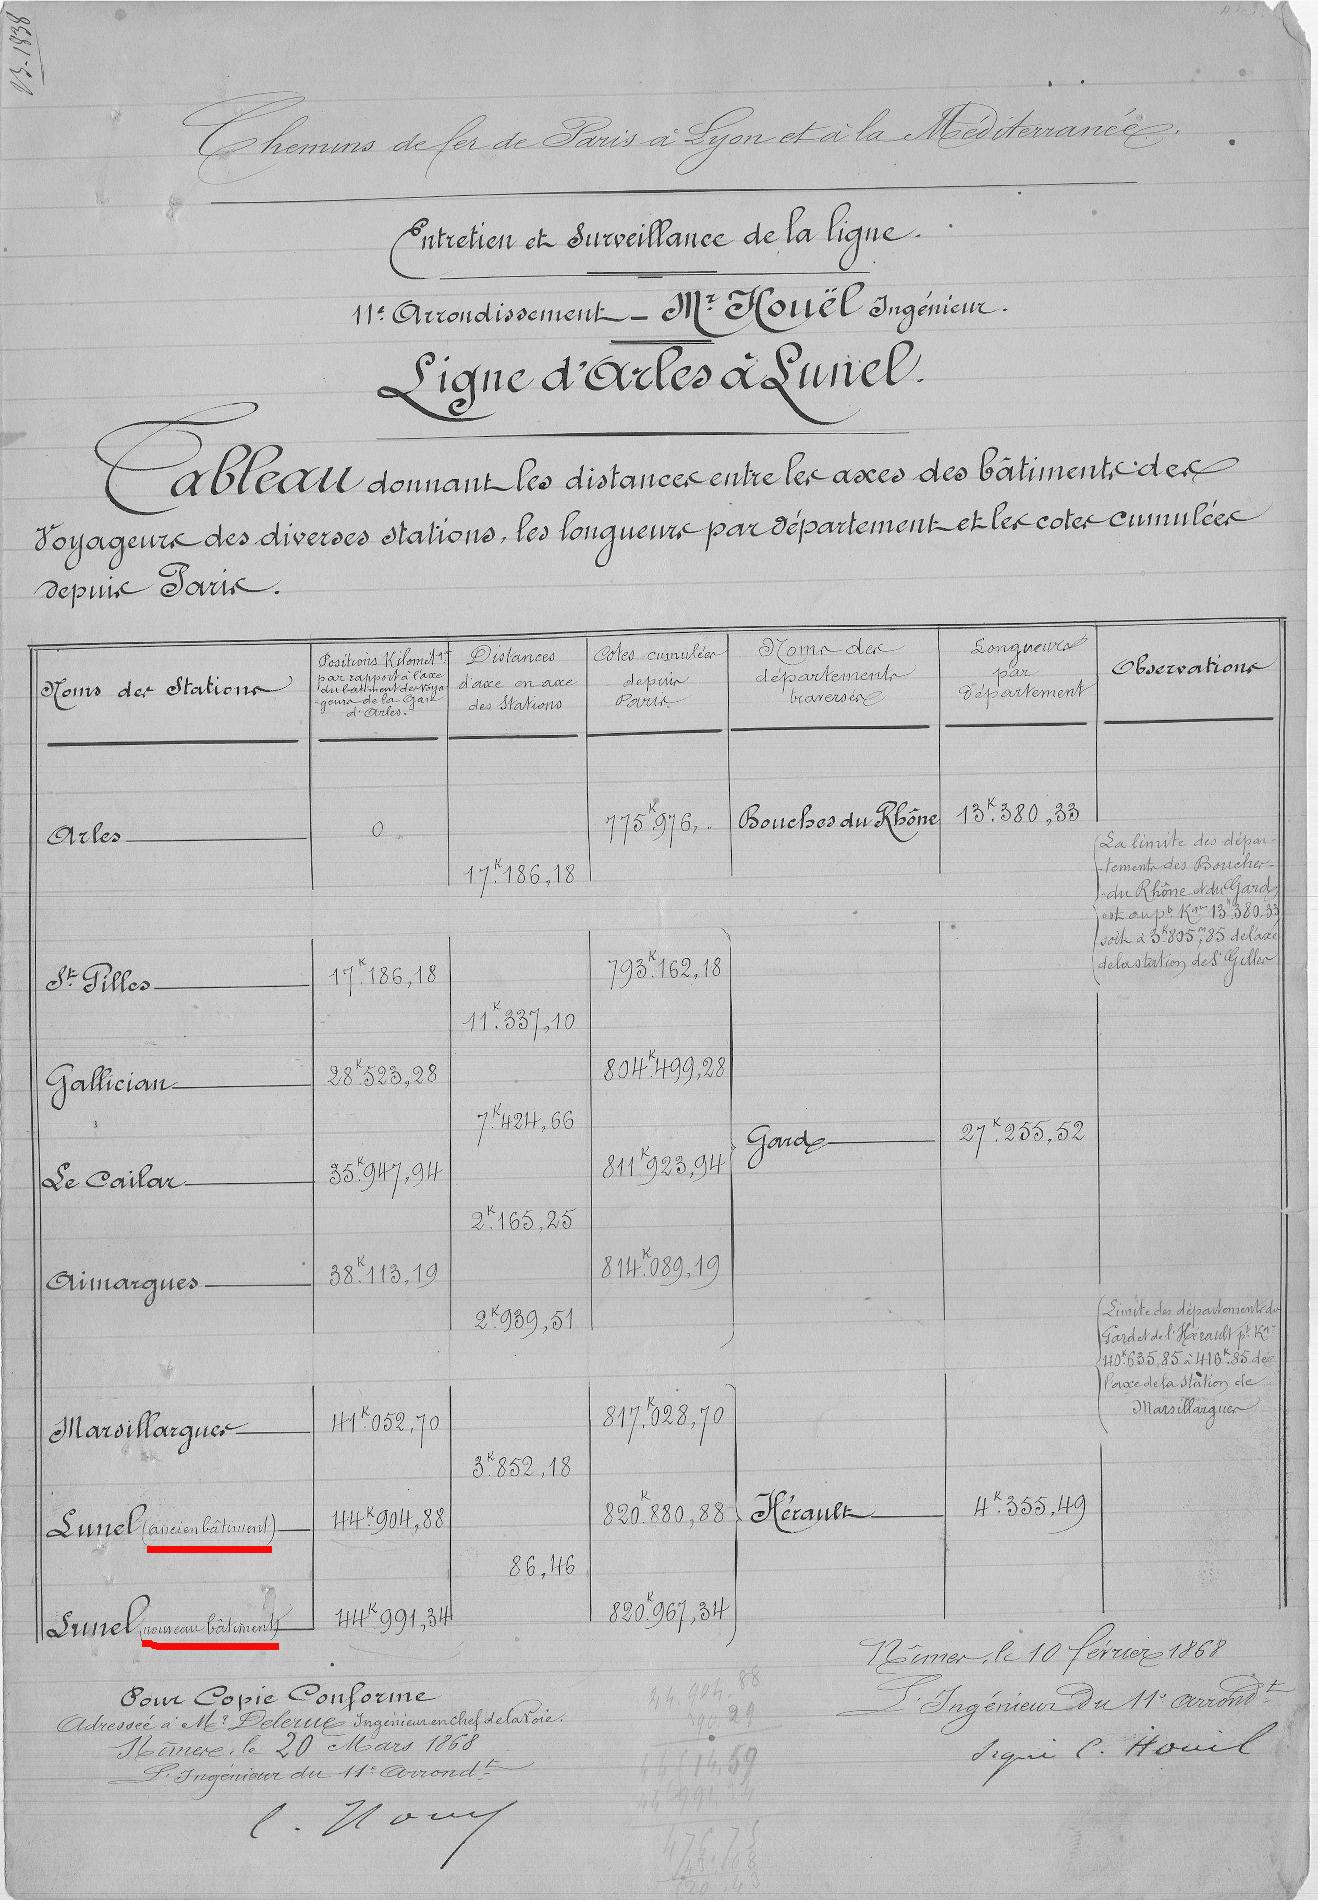 1838
Chemins de fer de Paris à Lyon et à la Méditerranée.
Entretien et Surveillance de la ligne.
11e Arrondissement – Mr Houël Ingénieur.
Ligne d'Arles à Lunel.
Tableau donnant les distances entre les axes des bâtiments des
Voyageurs des diverses stations, les longueurs par département et les cotes cumulées
depuis Paris.
Noms des Stations
Positions Kilométres
par rapport à l'axe
du bâtiment des Voya
geurs de la Gare
d'Arles.
Distances
d'axe en axe
des Stations
Cotes cumulées
depuis
Paris
Noms des
départements
traversés
Longueurs
par
département
Observations
Arles 0 775K976,. Bouches du Rhône 13K380,33
17K186,18
La limite des dépar-
-tements des Bouches-
-du Rhône et du Gard
est au pt Kque 13K380,33
soit à 3K805m,85 de l'axe
de la station de St Gilles
St Gilles 17K186,18 793K162,18
11K337,10
Gallician 28K523,28 804K499,28
7K424,66
Gard 27K255,52
Le Cailar 35K947,94 811K923,94
2K165,25
Aimargues 38K113,19 814K089,19
2K939,51
Limite des départements du
Gard et de l'Hérault pt Kque
40K635,85 à 416K.85 de
l'axe de la station de
Marsillargues
Marsillargues 41K052,70 817K028,70
3K852,18
Lunel (ancien bâtiment) 44K904,88 820K880,88 Hérault 4K355,49
86,46
Lunel (nouveau bâtiment) 44K991,34 820K967,34
Nîmes, le 10 février 1868
L'Ingénieur du 11e arrondt
Signé C. Houël
Pour Copie Conforme
Adressée à Mr Delerue Ingénieur en chef de la Voie.
Nîmes, le 20 Mars 1868
L'Ingénieur du 11e arrondt
C. Houël
44 904.88
290.29